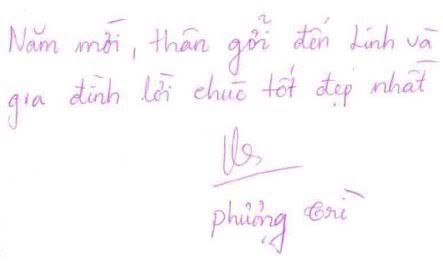 Năm mới, thân gởi đến Linh và
gia đình lời chúc tốt đẹp nhất
Phương